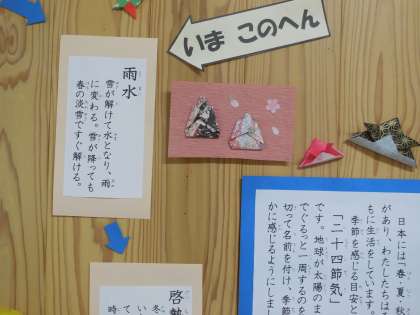 いま このへん
雨水
雪が解けて水となり、雨
に変わる。雪が降っても
春の淡雪ですぐ解ける。
日本には「春・夏・秋
があり、わたしたちは
もに生活をしています。
季節を感じる目安と
「二十四節気」
です。地球が太陽のま
でぐるっと一周するのを
切って名前を付け、季節
かに感じるようにしま
啓蟄
冬
い
て
時